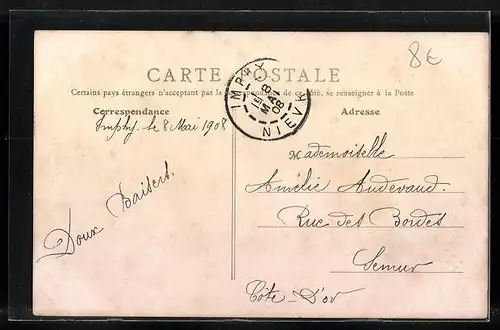 8€
CARTE POSTALE
Certains pays étrangers n'acceptant pas la Correspondance de ce côté, se renseigner à la Poste
Correspondance
Adresse
IMPHY
8
MAI
08
NIEVRE
Imphy, le 8 Mai 1908
Doux Baisers.
Mademoiselle
Amélie Audevaud.
Rue des Bordes
Semur
Côte-D'or